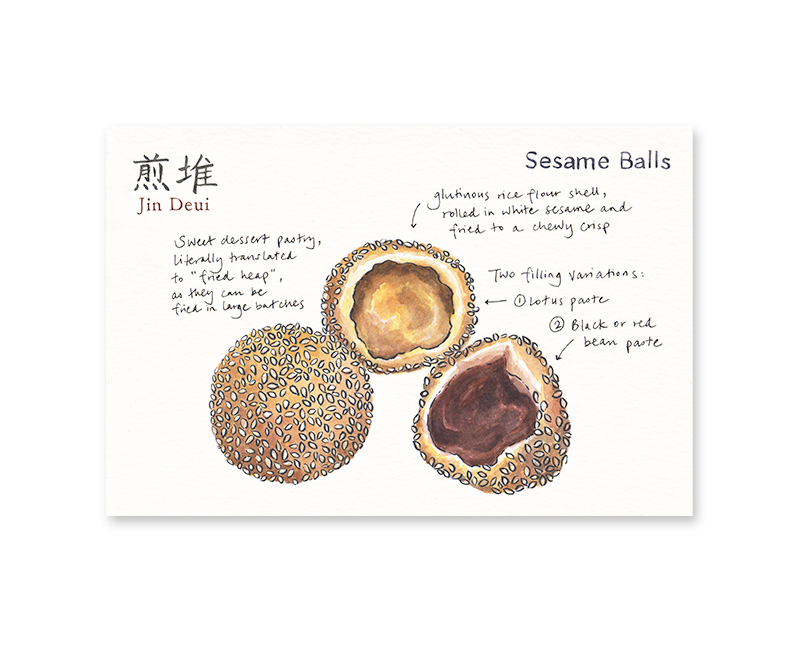 煎堆
Jin Deui
Sesame Balls
glutinous rice flour shell,
rolled in white sesame and
fried to a chewy crisp
Sweet dessert pastry,
literally translated
to "fried heap",
as they can be
fried in large batches
Two filling variations:
① Lotus paste
② Black or red
bean paste